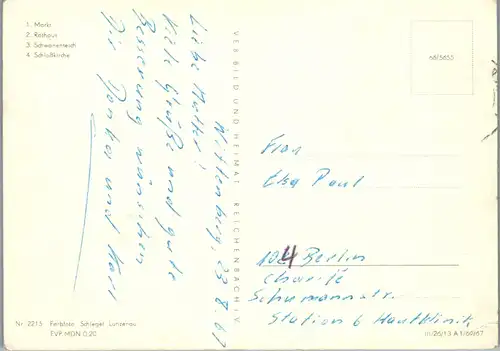 1. Markt
2. Rathaus
3. Schwanenteich
4. Schloßkirche
Wittenberg, 23.8.67
Liebe Mutter!
Viele Grüße und gute
Besserung wünschen
Dir und Karl
VEB BILD UND HEIMAT REICHENBACH i.V.
Frau
Elsa Paul
104 Berlin
Charité
Schumannstr.
Station 6 Hautklinik
Nr. 2215 Farbfoto Schlegel Lunzenau
EVP MDN 0,20
III/26/13 A 1/60/67